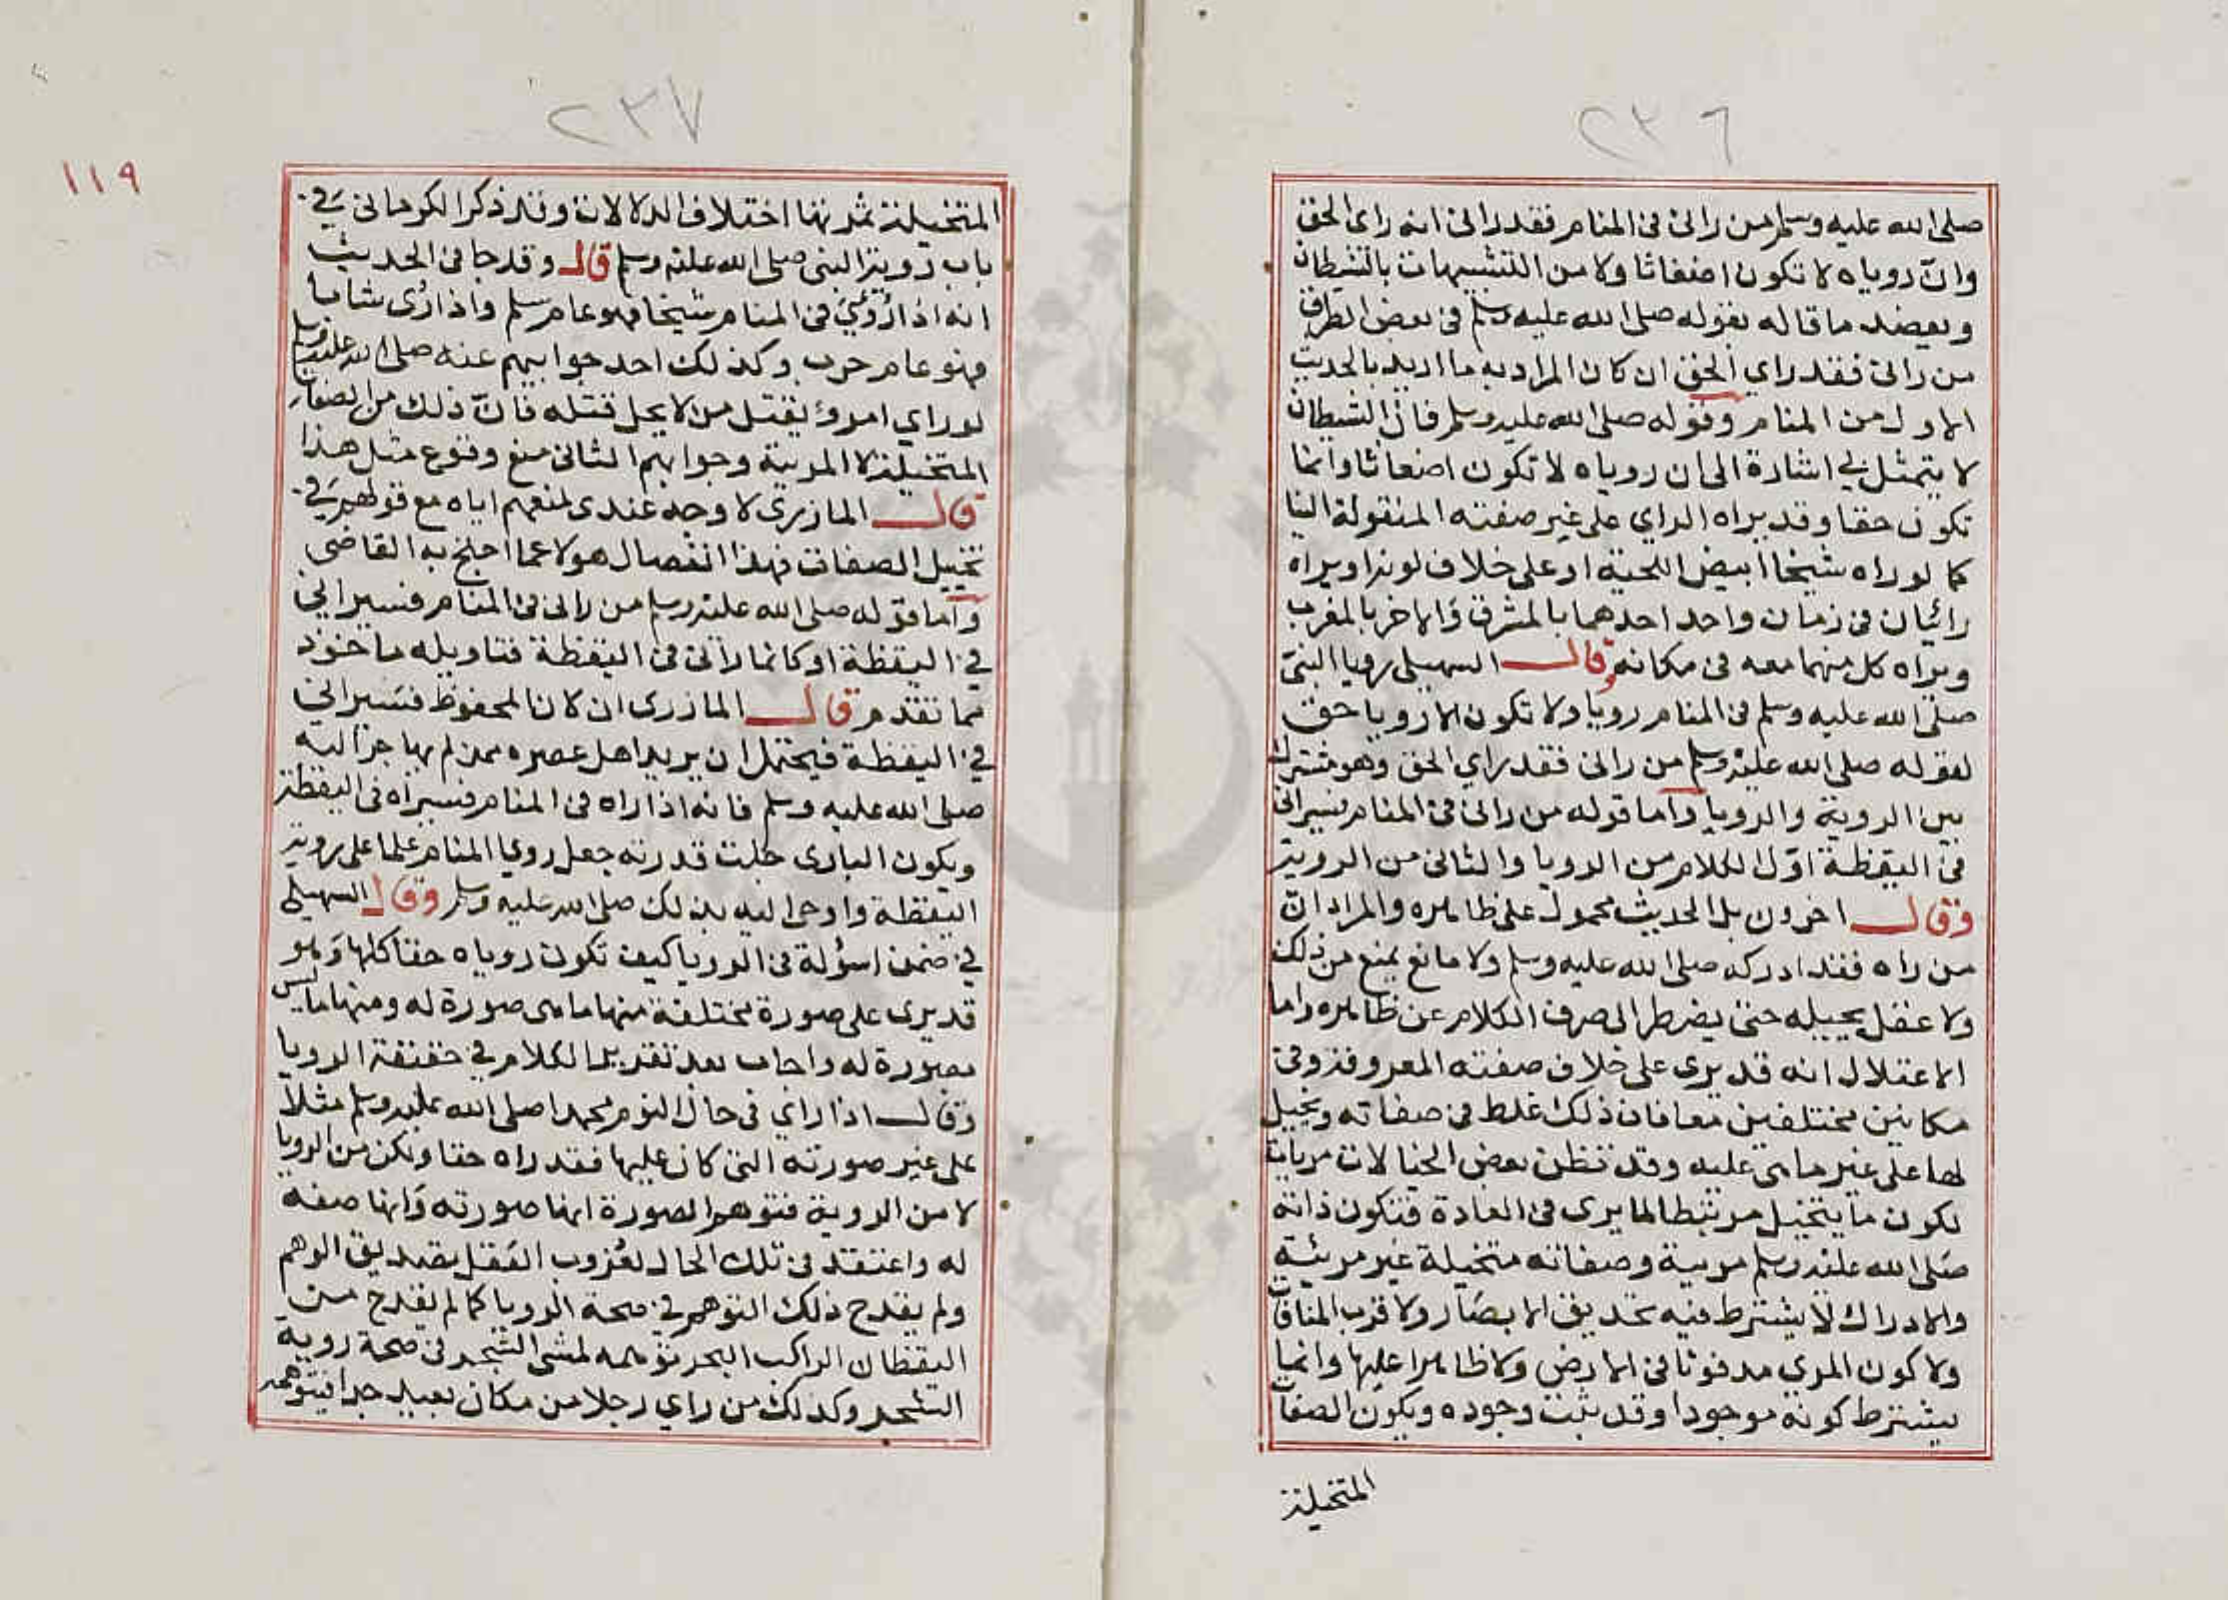 ٢٣٦
صلى الله عليه وسلم من راني في المنام فقد راني انه راى الحق
وانّ روياه لا تكون اضغاثا ولا من التشبيهات بالشيطان
ويعضد ما قاله بقوله صلى الله عليه وسلم في بعض الطرق
من راني فقد راي الحق ان كان المراد به ما اريد بالحديث
الاول من المنام وقوله صلى الله عليه وسلم فان الشيطان
لا يتمثل بي اشارة الى ان روياه لا تكون اضغاثا وانما
تكون حقا وقد يراه الراي على غير صفته المنقولة الينا
كما لو راه شيخا ابيض اللحية او على خلاف لونه او يراه
رائيان في زمان واحد احدهما بالمشرق والاخر بالمغرب
ويراه كل منهما معه في مكانه وقال السهيلي رويا النبيّ
صلى الله عليه وسلم في المنام رويا ولا تكون الا رويا حق
لقوله صلى الله عليه وسلم من راني فقد راي الحق وهو مشترك
بين الروية والرويا واما قوله من راني في المنام فسيراني
في اليقظة اوّل الكلام من الرويا والثاني من الروية
وقال اخرون بل الحديث محمول على ظاهره والمراد انّ
من راه فقد ادركه صلى الله عليه وسلم ولا مانع يمنع من ذلك
ولا عقل يحيله حتى يضطر الى صرف الكلام عن ظاهره واما
الاعتلال انه قد يرى على خلاف صفته المعروفة وفي
مكانين مختلفين معا فان ذلك غلط في صفاته وتخييل
لها على غير ما هي عليه وقد تظن بعض الخيالات مريات
لكون ما يتخيل مرتبطا لما يرى في العادة فتكون ذاته
صلى الله عليه وسلم مريية وصفاته متخيلة غير مرئية
والادراك لا يشترط فيه تحديق الابصار ولا قرب المنافات
ولا كون المري مدفونا في الارض ولا ظاهرا عليها وانما
يشترط كونه موجودا وقد ثبت وجوده ويكون الصفات
المتخيلة
٢٣٧
١١٩
المتخيلة ثمرتها اختلاف الدلالات وقد ذكر الكرماني في
باب روية النبي صلى الله عليه وسلم قال وقد جا في الحديث
انه اذا رُؤي في المنام شيخا فهو عام سلم واذا رُى شابا
فهو عام حرب وكذلك احد جوابيهم عنه صلى الله عليه وسلم
لو راي امرؤ يقتل من لا يحل قتله فانّ ذلك من الصفات
المتخيلة لا المريية وجوابهم الثاني منع وقوع مثل هذا
قال المازري لا وجه عندي لمنعهم اياه مع قولهم في
تخييل الصفات فهذا انفصال هولا عما احتج به القاضي
واما قوله صلى الله عليه وسلم من راني في المنام فسيراني
في اليقظة او كانما راني في اليقظة فتاويله ماخوذ
مما تقدم قال المازري ان كان المحفوظ فسيراني
في اليقظة فيحتمل ان يريد اهل عصره ممن لم يهاجر اليه
صلى الله عليه وسلم فانه اذا راه في المنام فسيراه في اليقظة
ويكون الباري جلت قدرته جعل رويا المنام علما على روية
اليقظة واوحى اليه بذلك صلى الله عليه وسلم وقال السهيلي
في ضمن اسؤلة في الرويا كيف تكون روياه حقا كلها وهو
قد يرى على صورة مختلفة منها ما هي صورة له ومنها ما ليس
بصورة له واجاب بعد تقديم الكلام في حقيقة الرويا
وقال اذا راي في حال النوم محمدا صلى الله عليه وسلم مثلا
على غير صورته التي كان عليها فقد راه حقا ولكن من الرويا
لا من الروية فتوهم الصورة انها صورته وانها صفة
له واعتقد في تلك الحال لعُزوب العَقل بتصديق الوهم
ولم يقدح ذلك التوهم في صحة الرويا كما لم يقدح من
اليقظان الراكب البحر توهمه لمشي الشجر في صحة روية
الشجر وكذلك من راي رجلا من مكان بعيد جدا فيتوهمه